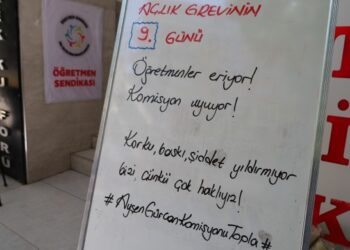 AÇLIK GREVİNİN
9. GÜNÜ
Öğretmenler eriyor!
Komisyon uyuyor!
Korku, baskı, şiddet yıldırmıyor
bizi, çünkü çok haklıyız!
#AyşenGürcanKomisyonuTopla#
ÖĞRETMEN
SENDİKASI